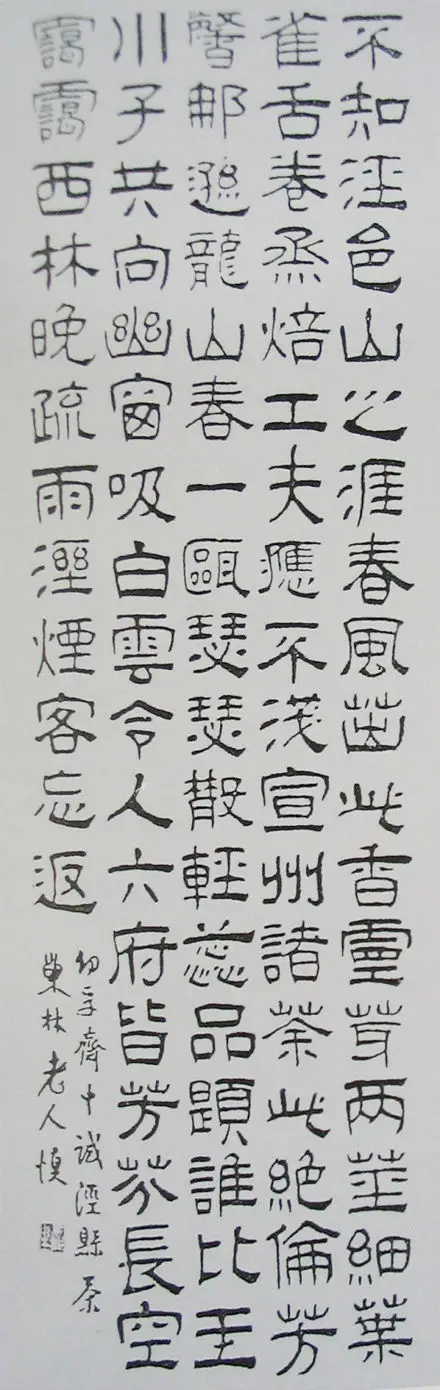 不知涇邑山之涯春風茁此香靈芽两莖細葉
雀舌卷蒸焙工夫應不淺宣州諸茶此絕倫芳
馨那遜龍山春一甌瑟瑟散輕蕊品題誰比玉
川子共向幽窗吸白雲令人六府皆芳芬長空
靄靄西林晚疏雨溼煙客忘返
幼孚齋中試涇縣茶
巢林老人慎